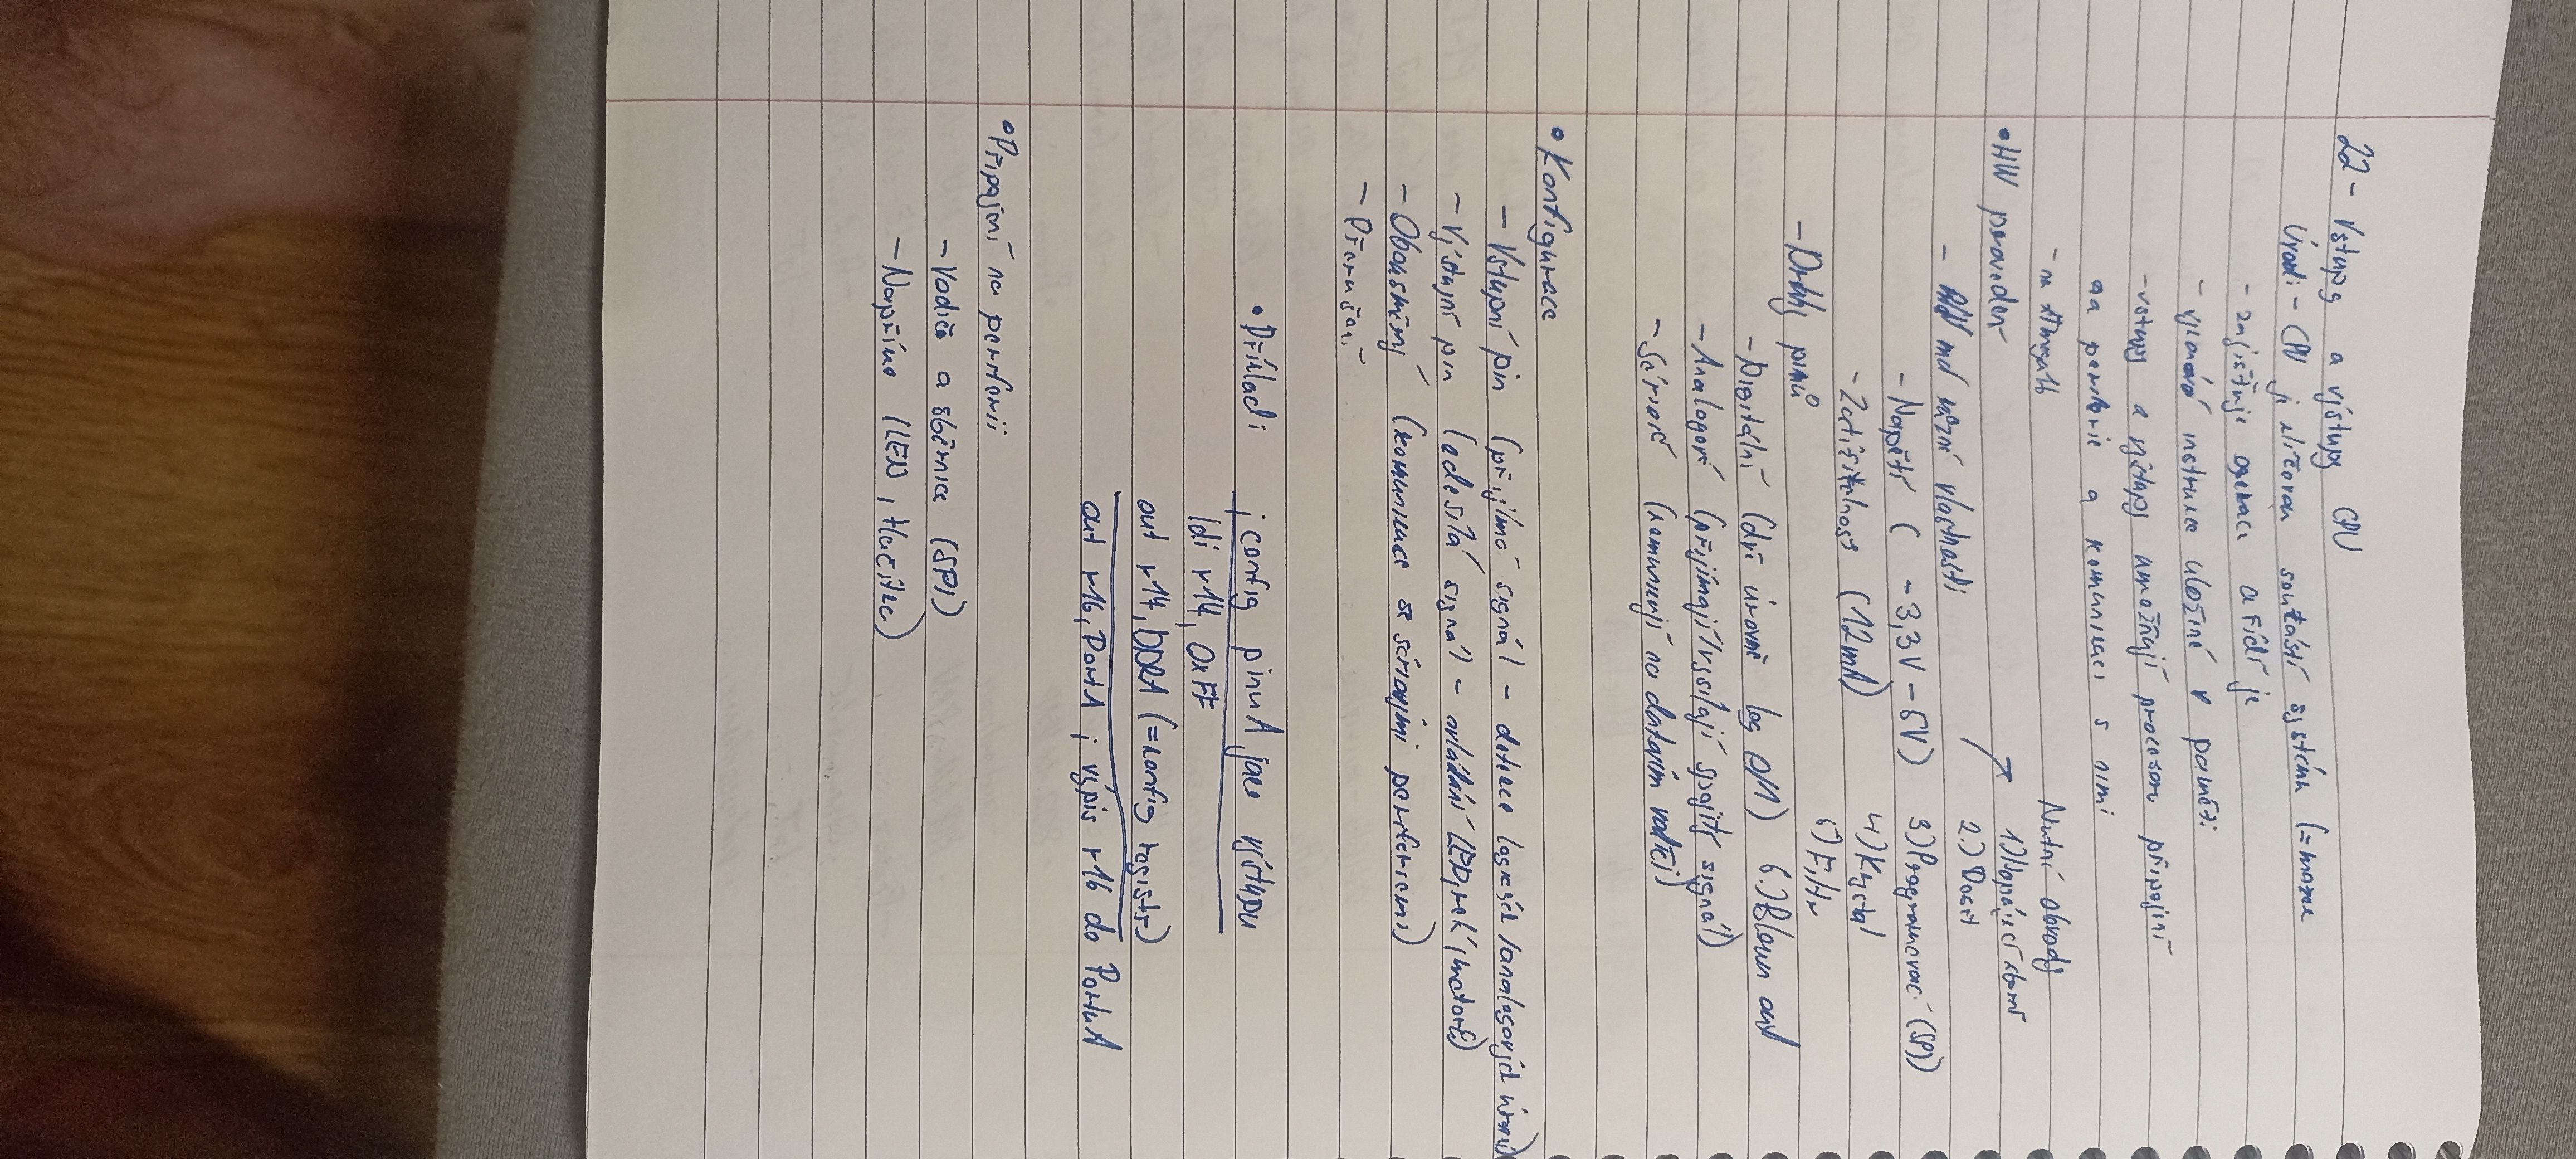 22 - Vstupy a výstupy CPU
Úvod: - CPU je klíčovou součástí systému (=mozek
- zajišťuje operaci a řídí je
- vykonává instrukce uložené v paměti
- vstupy a výstupy umožňují procesoru připojení
na periferie a komunikaci s nimi
Nutné obvody
• HW provedení
1) Napájecí
2.) Reset
- má různé vlastnosti
- Napětí ( -3,3V - 5V)
3) Programovací (SPI)
- Zatížitelnost (12mA)
4) Krystal
- Druhy pinů
5) Filtr
- Digitální (dvě úrovně log 0/1)
6.)
- Analogové (přijímají/vysílají spojitý signál)
- Sériové (komunikují na datovém vodiči)
• Konfigurace
- Vstupní pin (přijímá signál - detekce logických/analogových úrovní)
- Výstupní pin (odesílá signál - ovládání LED, relé, motorů)
- Obousměrný (komunikace se sériovými periferiemi)
- Přerušení
• Příklad: ; config pinu A jako výstupu
ldi r17, 0xFF
out r17, DDRA (=config registr)
out r16, PortA ; výpis r16 do PortuA
• Připojení na periferii
- Vodiče a sběrnice (SPI)
- Napřímo (LED, tlačítka)